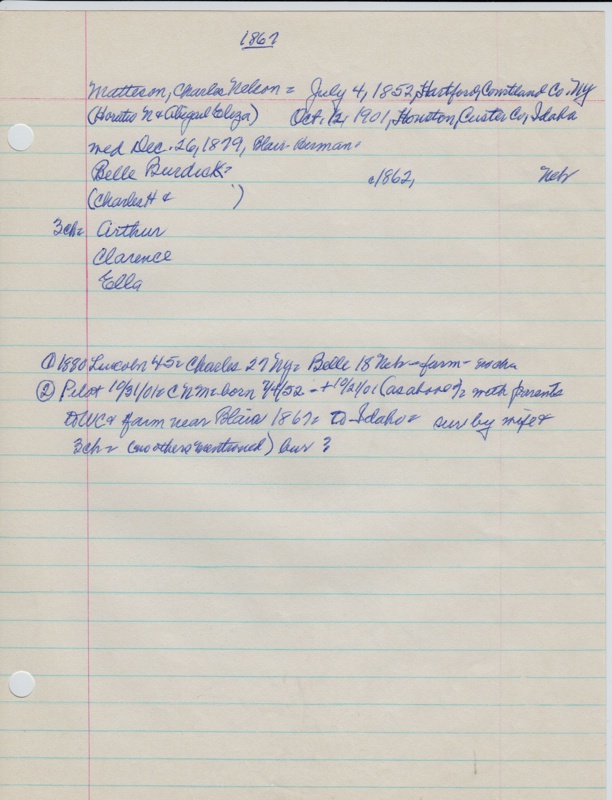 1867
Matteson, Charles Nelson = July 4, 1852, Hartford, Cortland Co. NY
(Horatio N & Abigail Eliza) Oct. 12, 1901, Houston, Custer Co, Idaho
med Dec. 26, 1879, Blair - Herman =
Belle Burdick = c1862, Neb
(Charles H & )
3ch = Arthur
Clarence
Ella
① 1880 Lincoln 45 = Charles 27 NY = Belle 18 Neb - farm -
② Pilot 10/31/01 = CNM = born 7/4/52 - + 10/21/01 (as above?) = with parents
to WC & farm near Blair 1867 = to Idaho = sur by wife &
3ch = (no others mentioned) bur ?